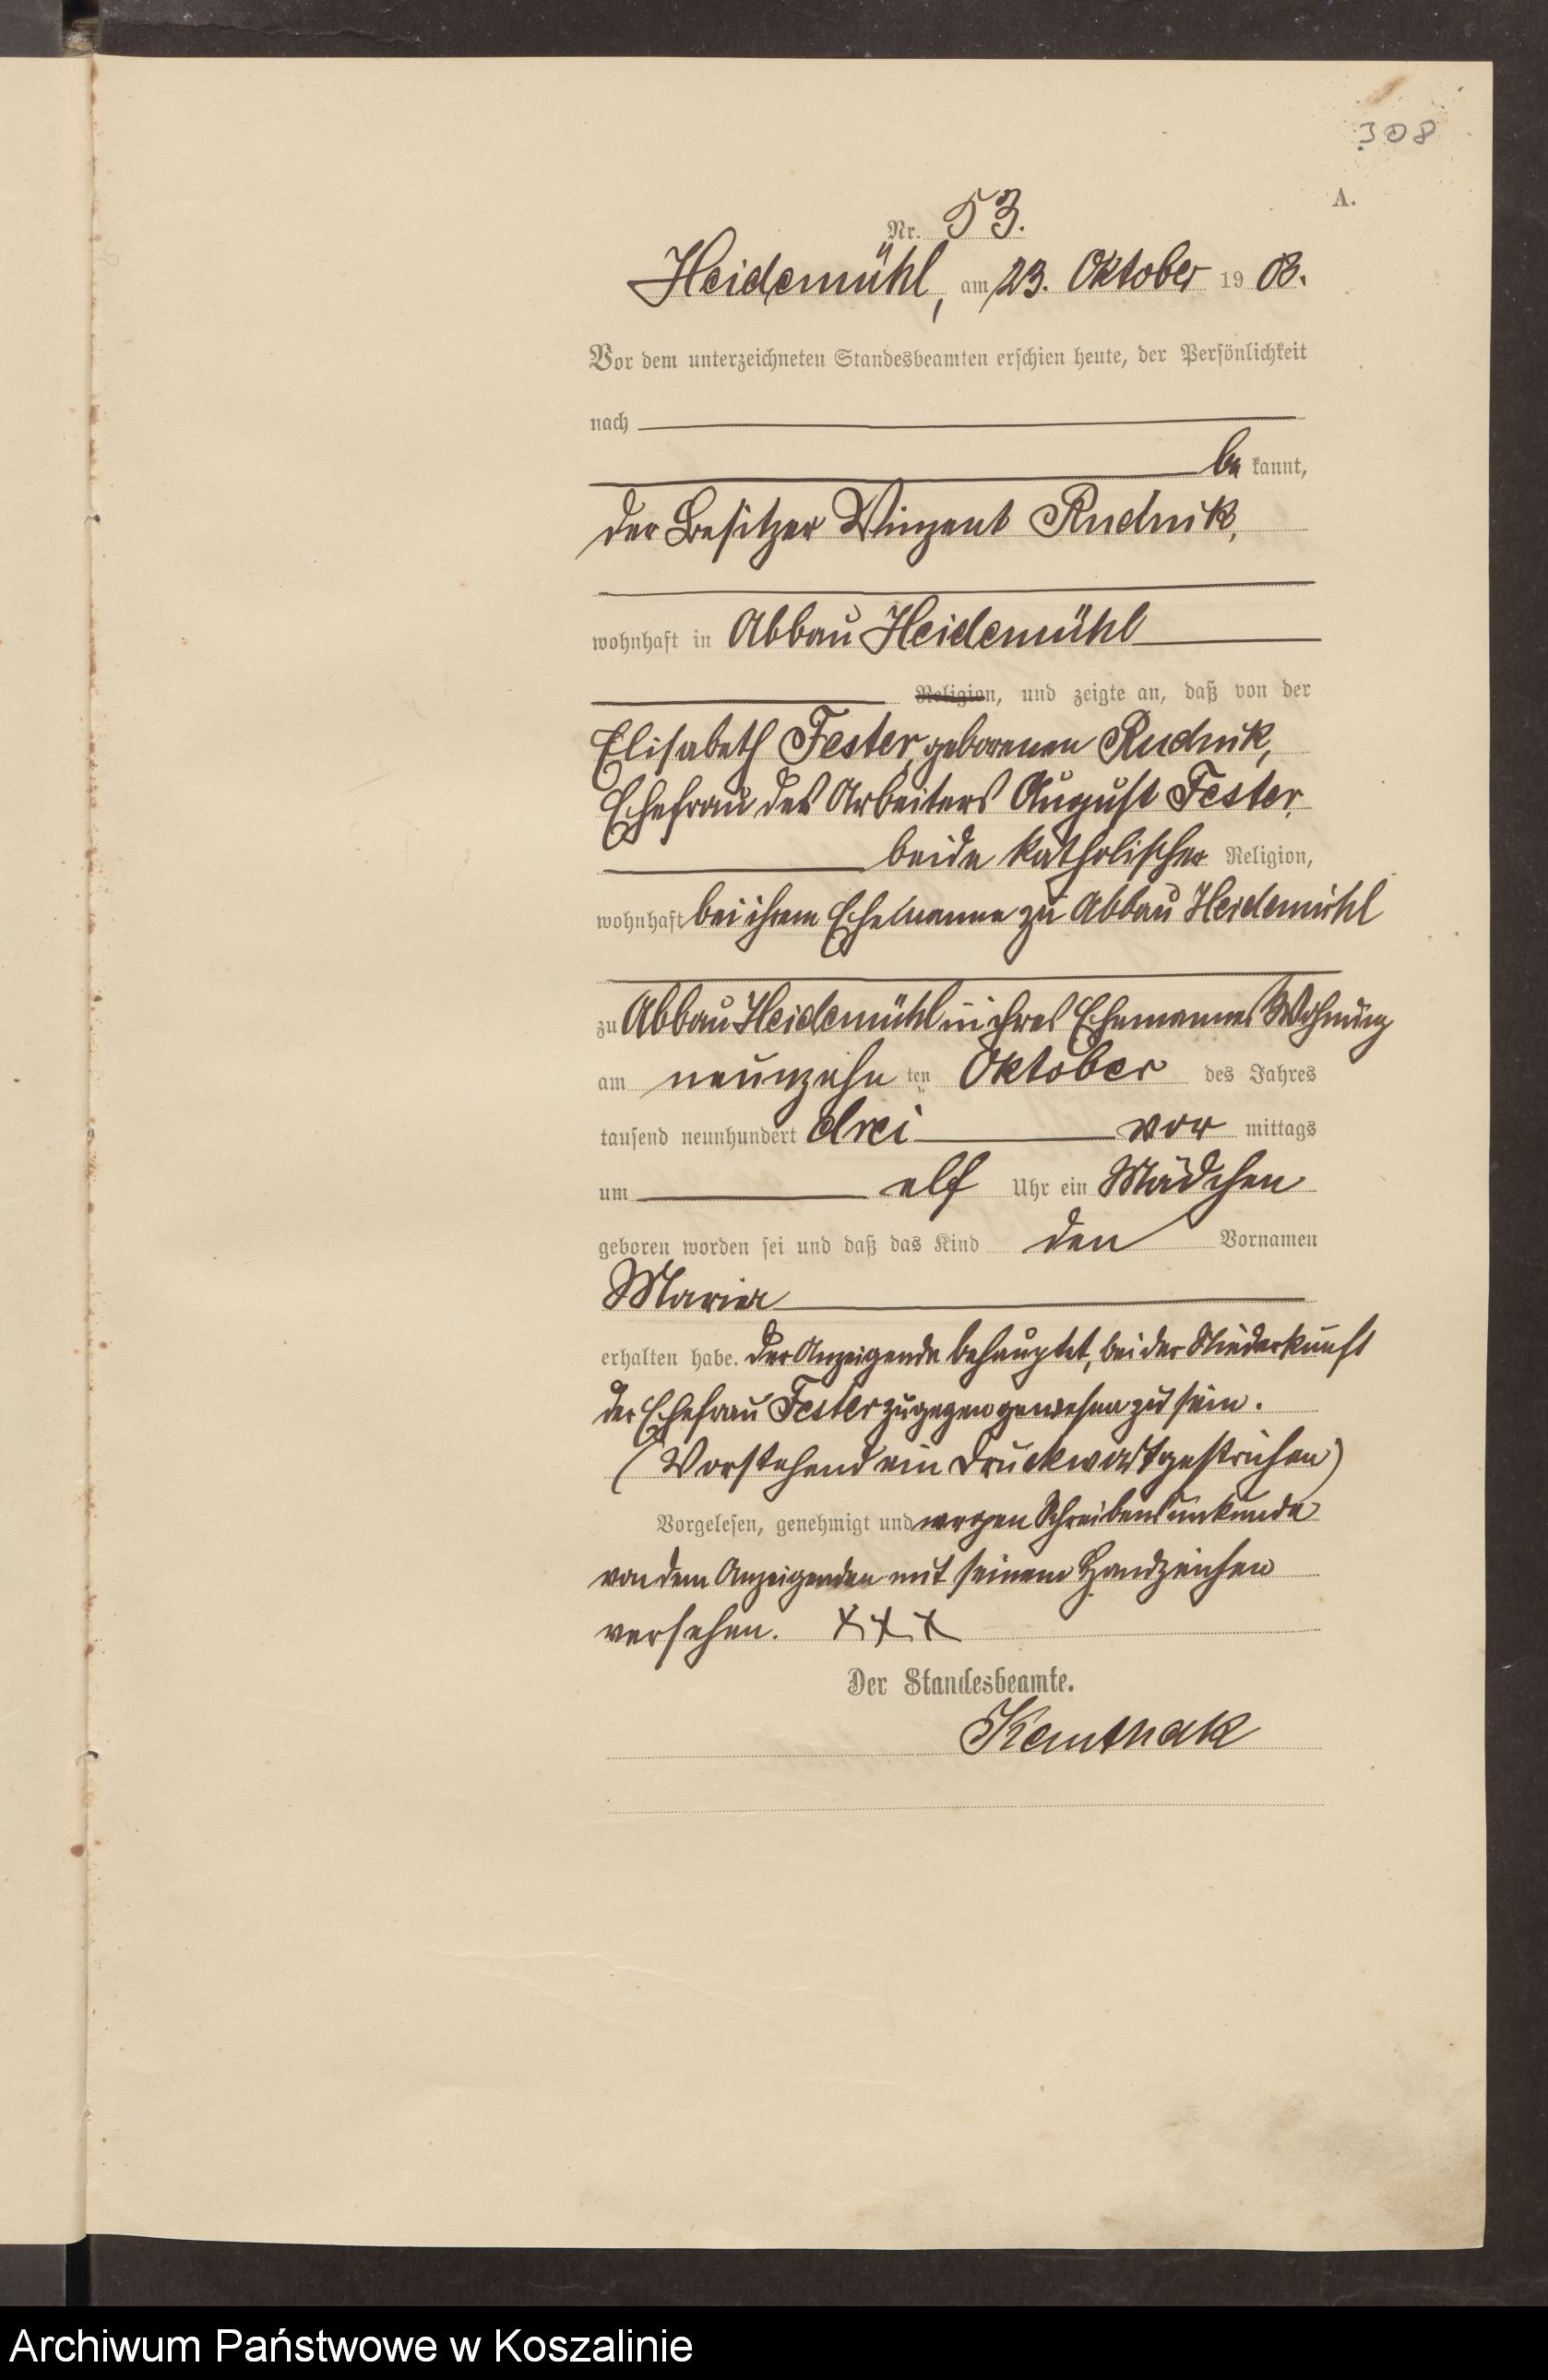 308
A.
Nr. 53.
Heidemühl, am 23. Oktober 1903.
Vor dem unterzeichneten Standesbeamten erschien heute, der Persönlichkeit
nach
be kannt,
der Besitzer Vinzent Rudnik,
wohnhaft in Abbau Heidemühl
Religion, und zeigte an, daß von der
Elisabeth Fester, geborenen Rudnik,
Ehefrau des Arbeiters August Fester,
beide katholischer Religion,
wohnhaft bei ihrem Ehemanne zu Abbau Heidemühl
zu Abbau Heidemühl in ihres Ehemannes Wohnung
am neunzehn ten Oktober des Jahres
tausend neunhundert drei vor mittags
um elf Uhr ein Mädchen
geboren worden sei und daß das Kind den Vornamen
Maria
erhalten habe. Der Anzeigende behauptet, bei der Niederkunft
der Ehefrau Fester zugegen gewesen zu sein.
(Vorstehend ein Druckwort gestrichen)
Vorgelesen, genehmigt und wegen Schreibensunkunde
von dem Anzeigenden mit seinem Handzeichen
versehen. xxx
Der Standesbeamte.
Kemthak
Archiwum Państwowe w Koszalinie